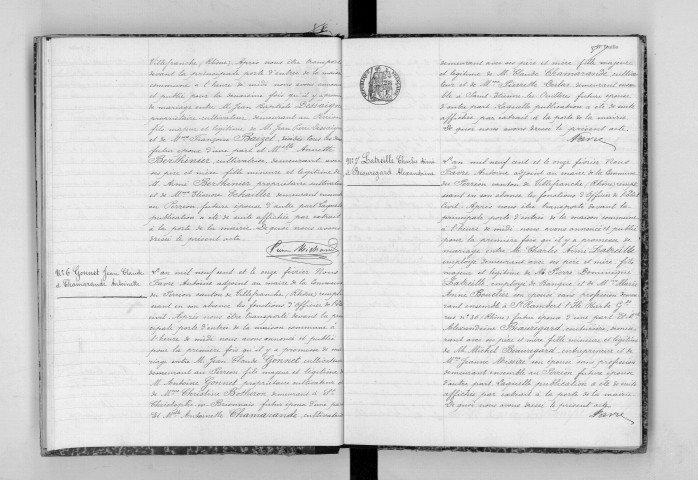 Villefranche (Rhône). Après nous être transporté
devant la principale porte d'entrée de la maison
commune à l'heure de midi nous avons annoncé
et publié pour la deuxième fois qu'il y a promesse
de mariage entre M. Jean Baptiste
propriétaire cultivateur, demeurant au Perréon
fils majeur et légitime de M. Jean Pierre
et de Mme Françoise
futur époux d'une part et Melle Annette
Berthinier cultivatrice, demeurant avec
ses père et mère fille mineure et légitime de
M. Aimé Berthinier propriétaire cultivateur
et de Mme demeurant ensemble
au Perréon future épouse d'autre part Laquelle
publication a été de suite affichée par extrait
à la porte de la mairie. De quoi nous avons
dressé le présent acte.
No 6 Gonnet Jean Claude
et Chamarande Antoinette
L'an mil neuf cent et le onze février Nous
Favre Antoine adjoint au maire de la commune
du Perréon canton de Villefranche, (Rhône) remplissant
en son absence les fonctions d'Officier de l'Etat
civil. Après nous être transporté devant la principale
porte d'entrée de la maison commune à
l'heure de midi nous avons annoncé et publié
pour la première fois qu'il y a promesse de mariage
entre M. Jean Claude Gonnet cultivateur
demeurant au Perréon fils majeur et légitime de
M. Antoine Gonnet propriétaire cultivateur et
de Mme Christine Botheron demeurant à St
Christophe en Brionnais futur époux d'une part
Et Melle Antoinette Chamarande, cultivatrice
demeurant avec ses père et mère fille majeure
et légitime de M. Claude Chamarande cultivateur
et de Mme Pierrette demeurant ensemble
à Saint Etienne les Oullières future épouse
d'autre part Laquelle publication a été de suite
affichée par extrait à la porte de la mairie.
De quoi nous avons dressé le présent acte.
Favre
No 7 Latreille Charles Aimé
et Beauregard Alexandrine
L'an mil neuf cent et le onze février Nous
Favre Antoine adjoint au maire de la Commune
du Perréon canton de Villefranche, (Rhône) remplissant
en son absence les fonctions d'Officier de l'Etat
Civil. Après nous être transporté devant la
principale porte d'entrée de la maison commune
à l'heure de midi nous avons annoncé et publié
pour la première fois qu'il y a promesse de
mariage entre M. Charles Aimé Latreille
employé demeurant avec ses père et mère, fils
majeur et légitime de M. Pierre Dominique
Latreille, employé de Banque et de Mme Marie
Anna Bouclier son épouse sans profession demeurant
ensemble à St Rambert l'Ile Barbe
(Rhône) futur époux d'une part Et Melle
Alexandrine Beauregard, couturière, demeurant
avec ses père et mère fille mineure et légitime
de M. Michel Beauregard, entrepreneur et de
Mme Jeanne son épouse sans profession
demeurant ensemble au Perréon future épouse
d'autre part Laquelle publication a été de suite
affichée par extrait à la porte de la mairie
De quoi nous avons dressé le présent acte.
Favre